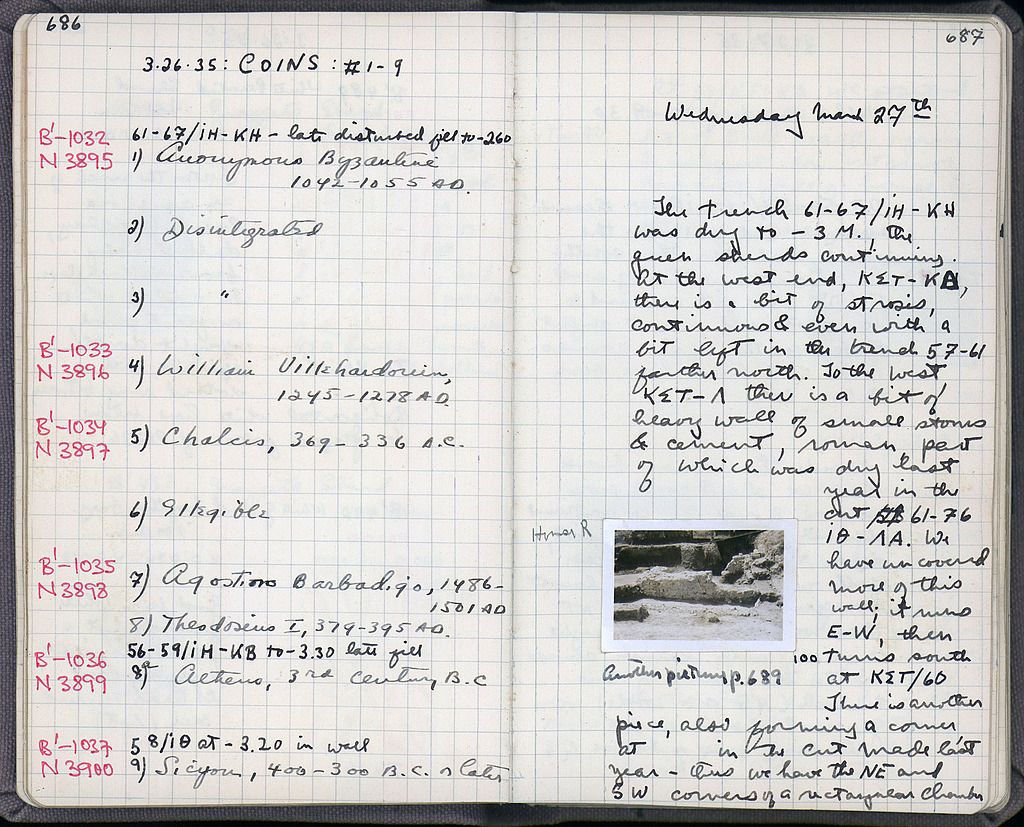 686
3.26.35: COINS: #1-9
B'-1032
61-67/iH-KH - late disturbed fill to -260
N 3895
1) Anonymous Byzantine
1042-1055 AD.
2) Disintegrated
3) "
B'-1033
N 3896
4) William Villehardouin,
1245-1278 AD
B'-1034
N 3897
5) Chalcis, 369-336 A.C.
6) Illegible
B'-1035
N 3898
7) Agostino Barbadigo, 1486-
1501 AD
8) Theodosius I, 379-395 AD.
56-59/iH-KB to -3.30 late fill
B'-1036
N 3899
8a) Athens, 3rd century B.C
B'-1037
58/iθ at -3.20 in wall
N 3900
9) Sicyon, 400-300 B.C. or later
687
Wednesday March 27th
The trench 61-67/iH-KH
was dug to -3 M., the
green sherds continuing.
At the west end, KΣT-KΔ,
there is a bit of strosis,
continuous & even with a
bit left in the trench 57-61
farther north. To the west
KΣT-Λ there is a bit of
heavy wall of small stones
& cement, roman, part
of which was dug last
year in the
cut 61-76
iθ-ΛA. We
have uncovered
more of this
wall; it runs
E-W, then
100 turns south
at KΣT/60
There is another
piece, also forming a corner
at in the cut made last
year - thus we have the NE and
SW corners of a rectangular chamber
Homer R
Another picture p. 689